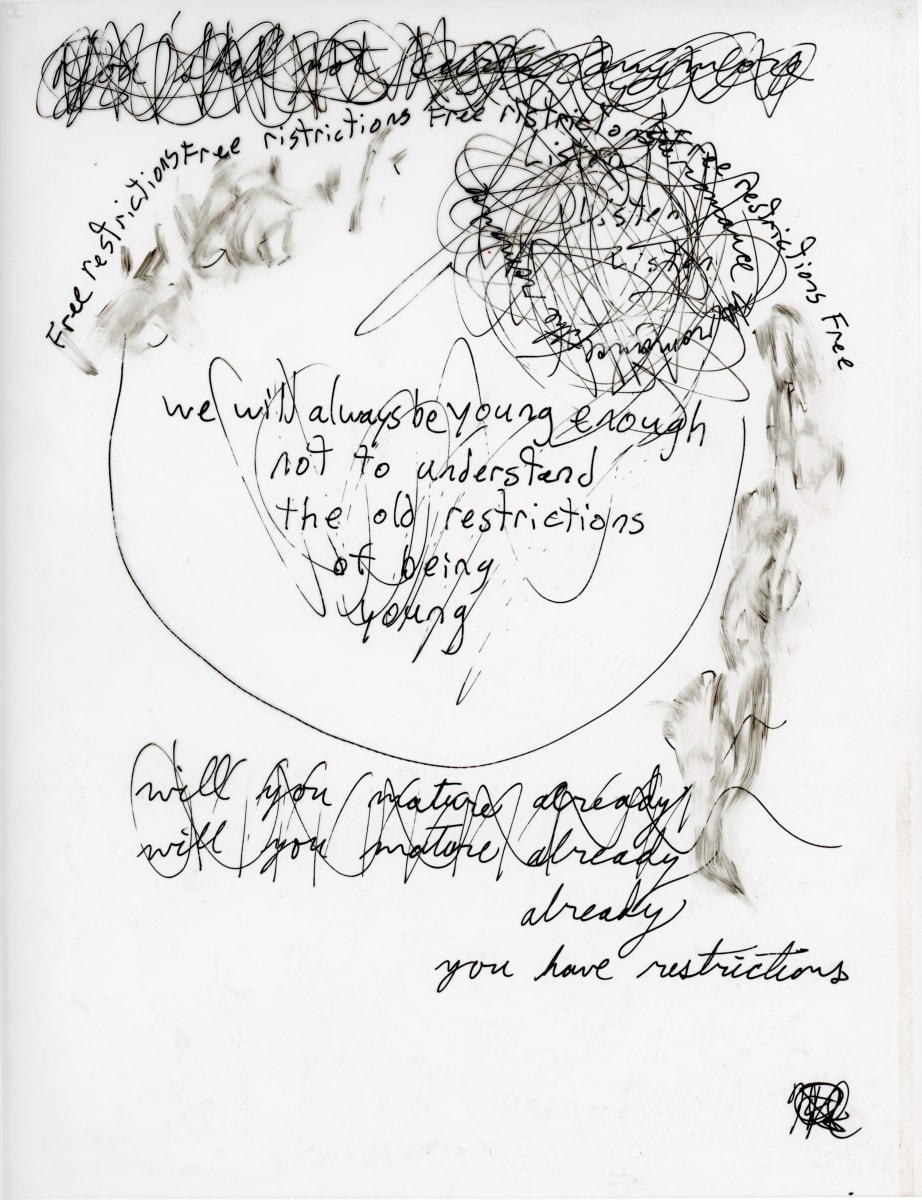 you shall not
Free restrictions Free ristrictions Free ristrictions Free restrictions Free
Listen
Listen
Listen
romance
we will always be young enough
not to understand
the old restrictions
of being
young
will you mature already
will you mature already
already
you have restrictions